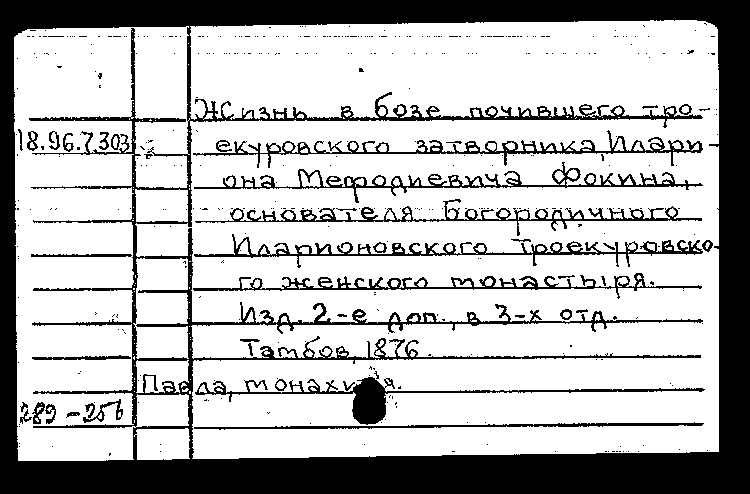 Жизнь в бозе почившего тро-
18.96.7.303 екуровского затворника, Илари-
она Мефодиевича Фокина,
основателя Богородичного
Иларионовского Троекуровско-
го женского монастыря.
Изд. 2-е доп., в 3-х отд.
Тамбов, 1876.
Павла, монахиня.
289-256